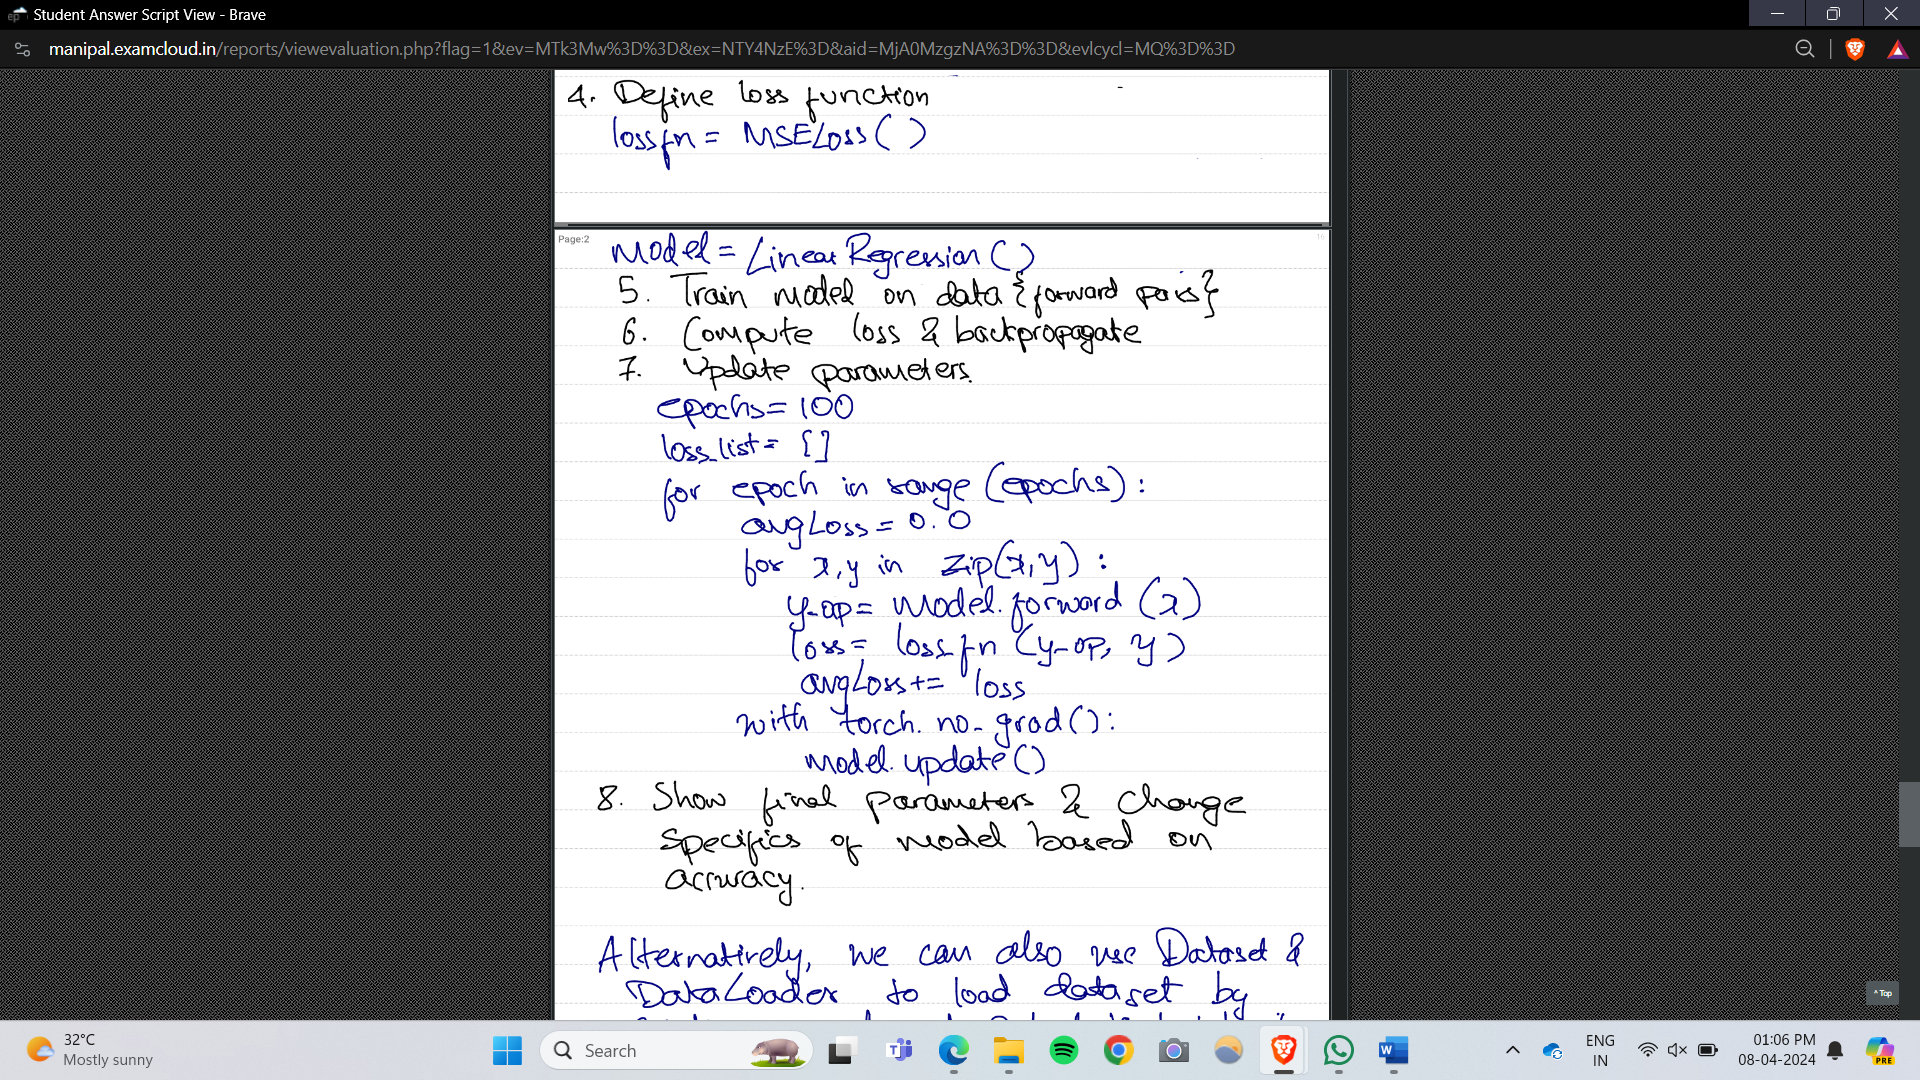 Student Answer Script View - Brave
manipal.examcloud.in/reports/viewevaluation.php?flag=1&ev=MTk3Mw%3D%3D&ex=NTY4NzE%3D&aid=MjA0MzgzNA%3D%3D&evlcycl=MQ%3D%3D
4. Define loss function
lossfn = MSELoss( )
Page:2
16
model = LinearRegression()
5. Train model on data {forward pass}
6. Compute loss & backpropagate
7. Update parameters.
epochs = 100
loss_list = []
for epoch in range (epochs) :
avgLoss = 0.0
for x,y in zip(x,y) :
y-op = model.forward (x)
loss = loss_fn (y-op, y)
avgLoss += loss
with torch.no_grad():
model.update()
8. Show final parameters & change
specifics of model based on
accuracy.
Alternatively, we can also use Dataset &
DataLoader to load dataset by
^ Top
32°C
Mostly sunny
Search
ENG
IN
01:06 PM
08-04-2024
PRE